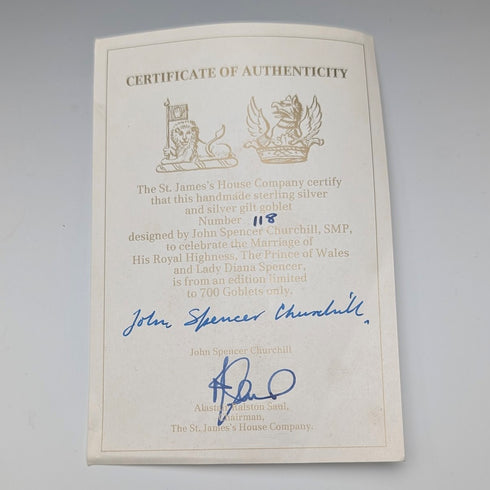 CERTIFICATE OF AUTHENTICITY
The St. James's House Company certify
that this handmade sterling silver
and silver gilt goblet
Number 118
designed by John Spencer Churchill, SMP,
to celebrate the Marriage of
His Royal Highness, The Prince of Wales
and Lady Diana Spencer,
is from an edition limited
to 700 Goblets only.
John Spencer Churchill.
John Spencer Churchill
Alastair Ralston Saul,
Chairman,
The St. James's House Company.